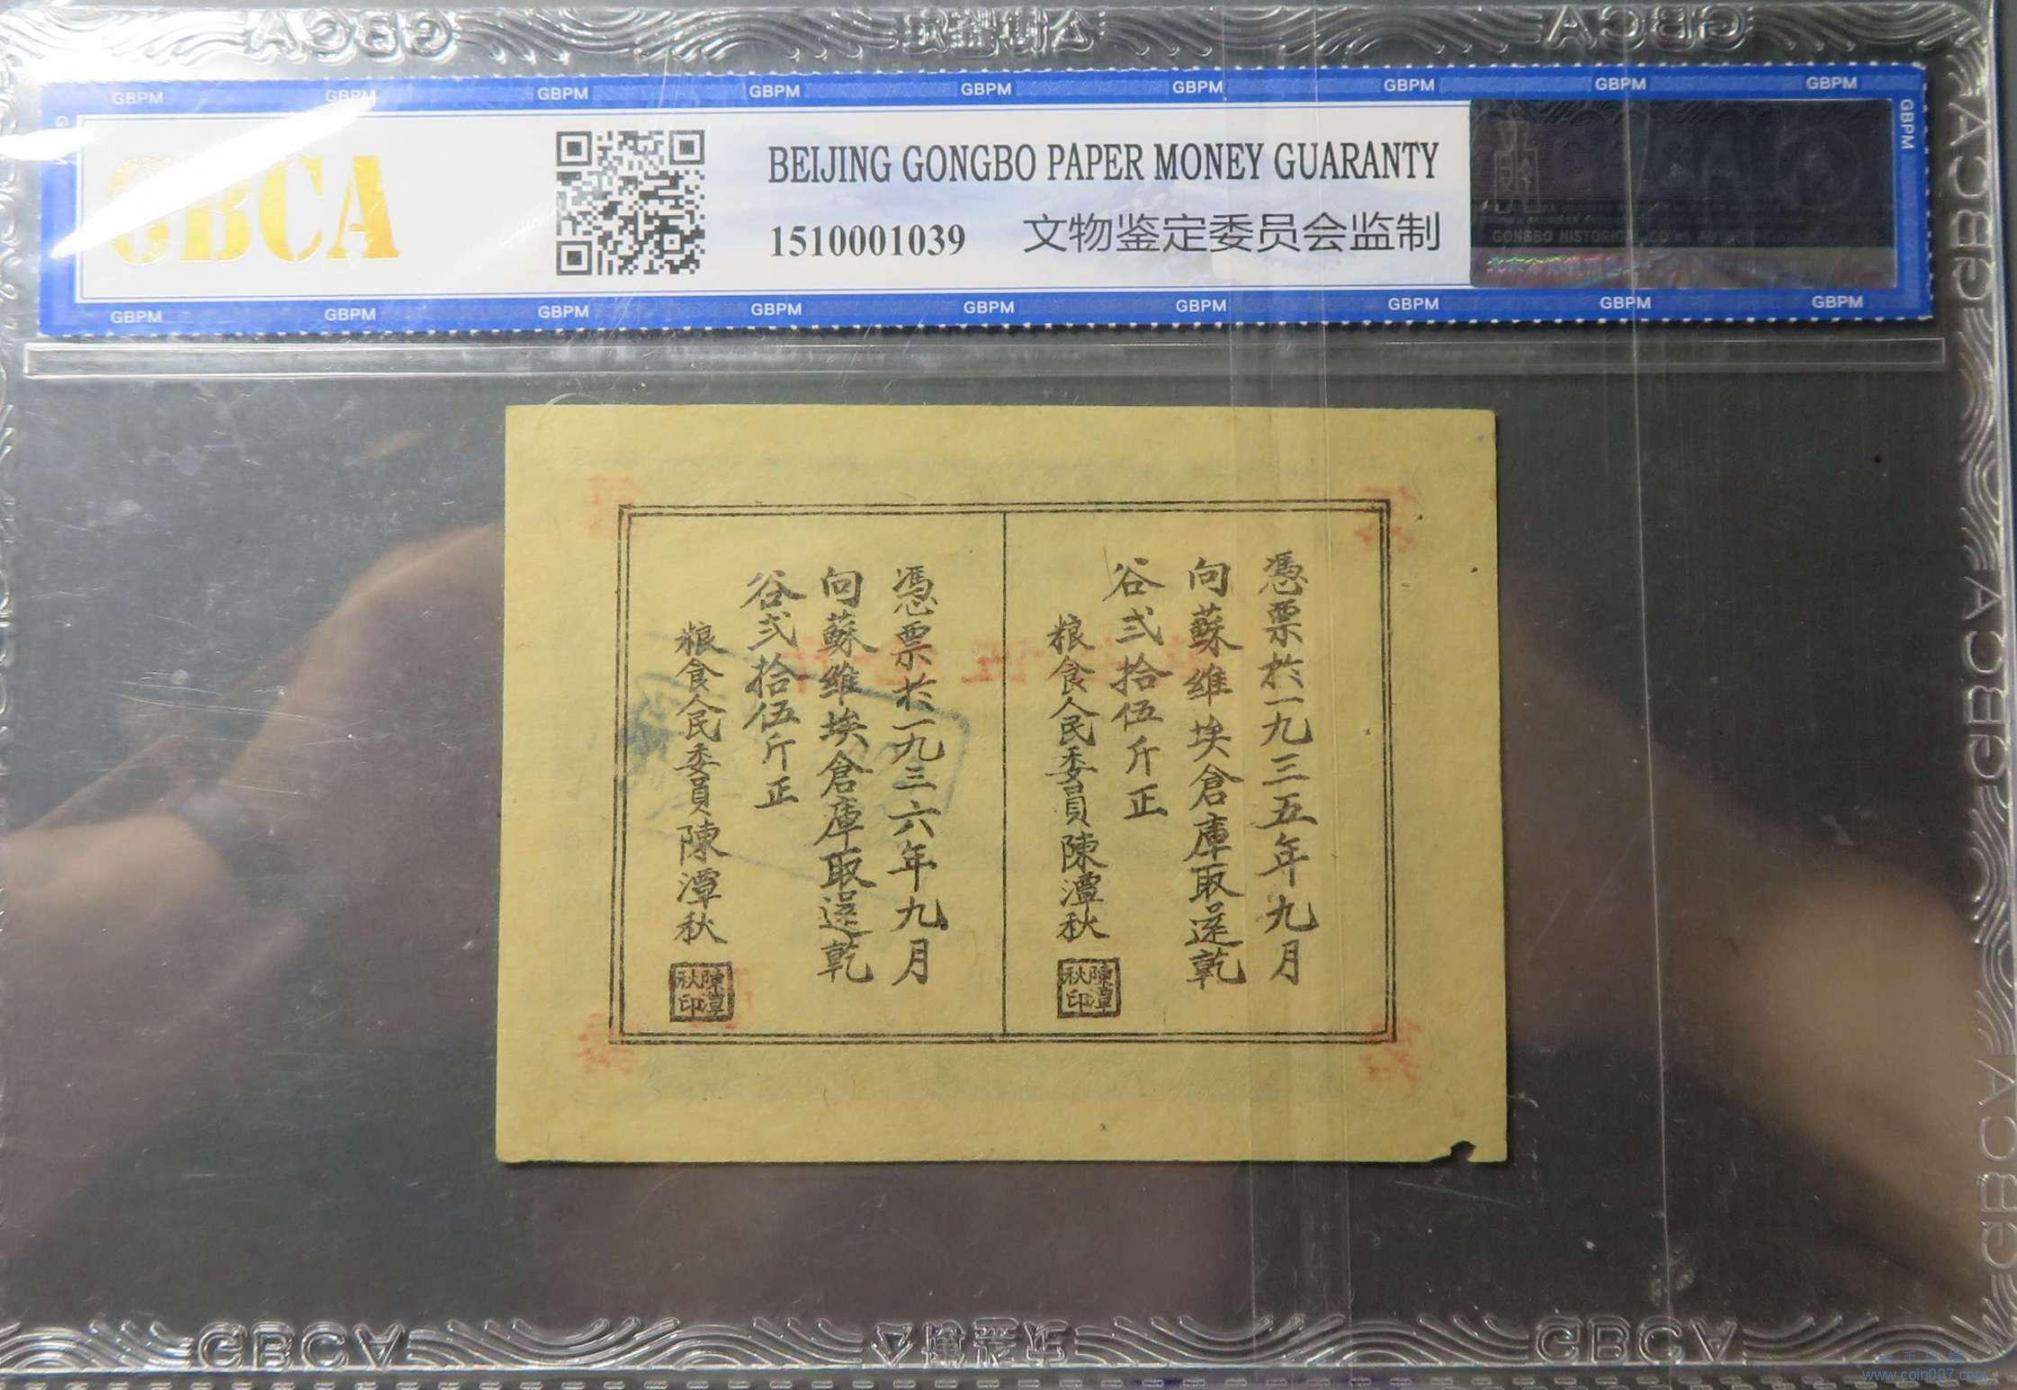 GBCA
GBCA
GBPM GBPM GBPM GBPM GBPM GBPM GBPM GBPM GBPM
GBCA
BEIJING GONGBO PAPER MONEY GUARANTY
1510001039 文物鉴定委员会监制
GONGBO HISTORICAL
GBPM
GBPM
GBPM GBPM GBPM GBPM GBPM GBPM GBPM GBPM GBPM
憑票於一九三五年九月
向蘇維埃倉庫取還乾
谷弍拾伍斤正
粮食人民委員陳潭秋
陳潭秋印
憑票於一九三六年九月
向蘇維埃倉庫取還乾
谷弍拾伍斤正
粮食人民委員陳潭秋
陳潭秋印
GBCA
GBCA
GBCA
GBCA
GBCA
GBCA
www.coin007.com